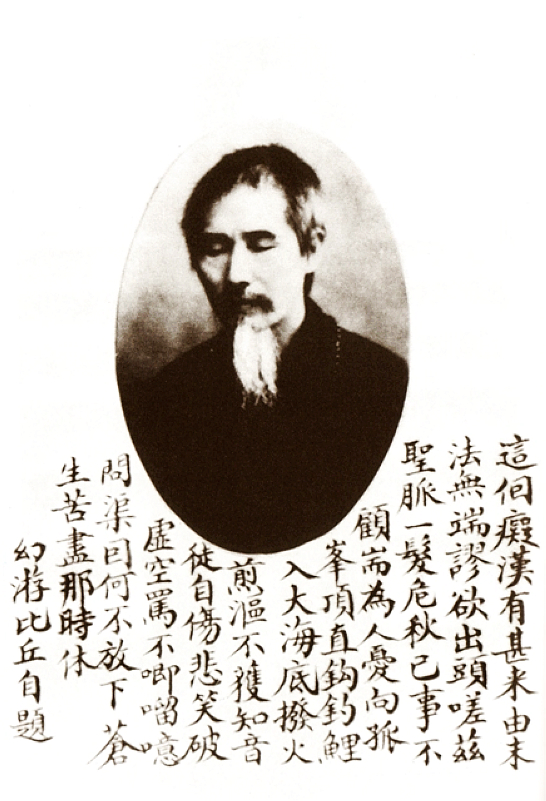 這個癡漢有甚来由末
法無端謬欲出頭嗟茲
聖脈一髮危秋已事不
顧耑為人憂向孤
峯項直鈎釣鯉
入大海底撥火
煎漚不獲知音
徒自傷悲笑破
虛空罵不唧𠺕噫
問渠囙何不放下蒼
生苦盡那時休
幻游比丘自題